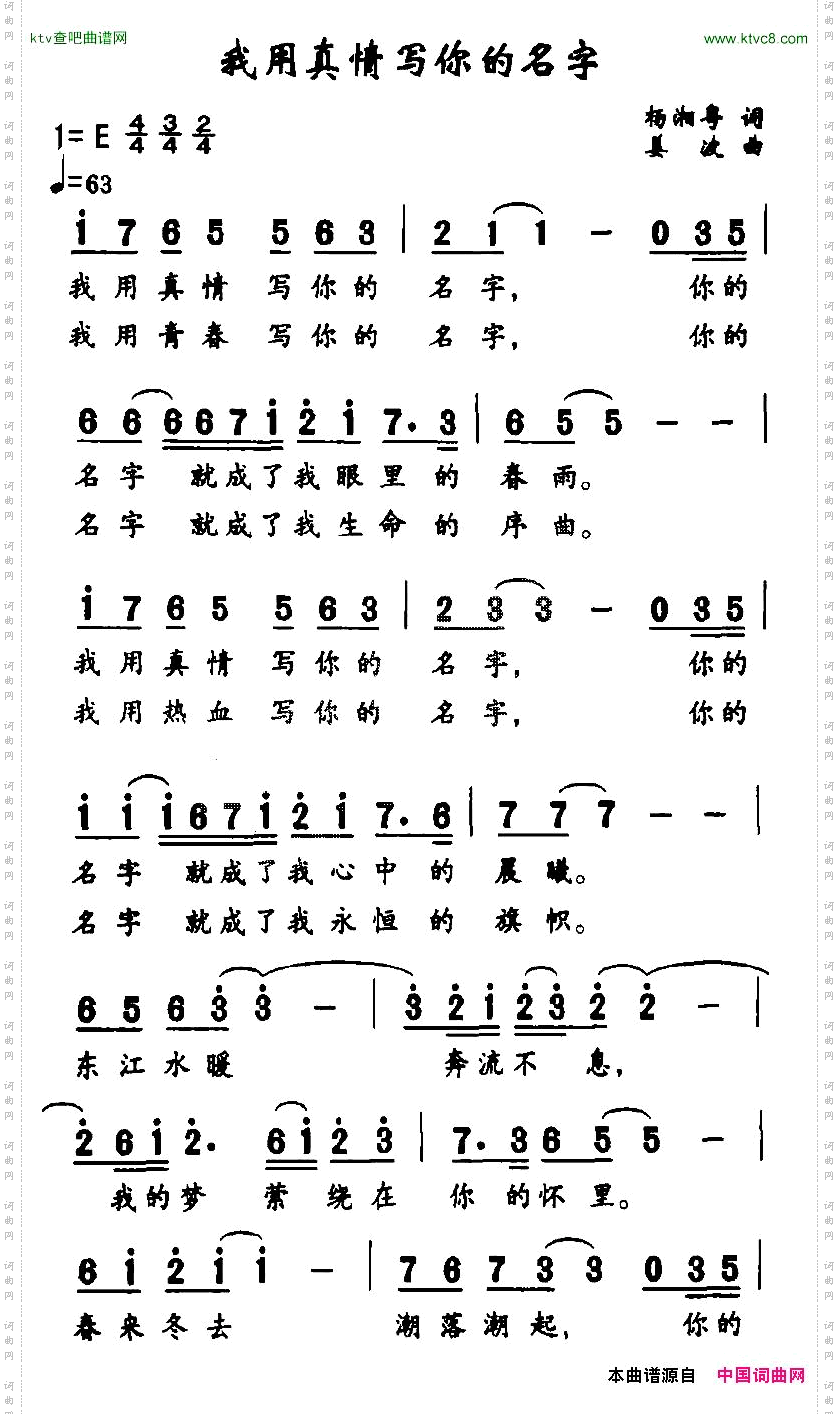 ktv查吧曲谱网 www.ktvc8.com
我用真情写你的名字
1=E 4/4 3/4 2/4
杨湘粤 词
姜 波 曲
♩=63
i 7 6 5 5 6 3 | 2 1 1 - 0 3 5 |
我用真情 写你的 名字, 你的
我用青春 写你的 名字, 你的
6 6 6 6 7 i 2 i 7. 3 | 6 5 5 - - |
名字 就成了我眼里的 春雨。
名字 就成了我生命的 序曲。
i 7 6 5 5 6 3 | 2 3 3 - 0 3 5 |
我用真情 写你的 名字, 你的
我用热血 写你的 名字, 你的
i i i 6 7 i 2 i 7. 6 | 7 7 7 - - |
名字 就成了我心中的 晨曦。
名字 就成了我永恒的 旗帜。
6 5 6 3 3 - | 3 2 i 2 3 2 2 - |
东江水暖 奔流不息,
2 6 i 2. 6 i 2 3 | 7. 3 6 5 5 - |
我的梦 萦绕在 你的怀里。
6 i 2 i i - | 7 6 7 3 3 0 3 5 |
春来冬去 潮落潮起, 你的
本曲谱源自 中国词曲网
词曲网